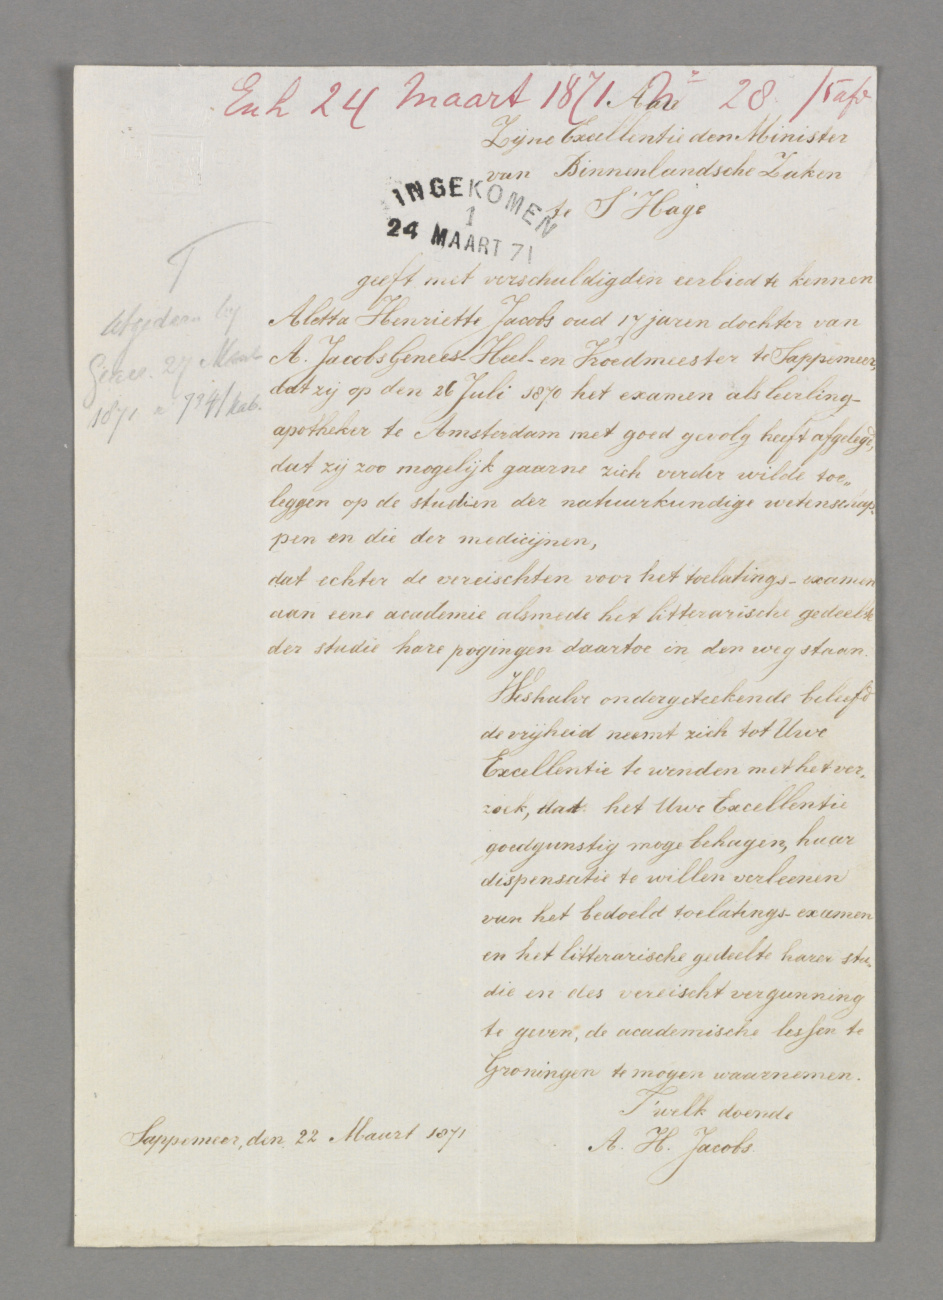 Exh 24 Maart 1871 No 28. /5 afd
Aan
Zijne Excellentie den Minister
van Binnenlandsche Zaken
te S'Hage
INGEKOMEN
1
24 MAART 71
geeft met verschuldigden eerbied te kennen
Aletta Henriette Jacobs oud 17 jaren dochter van
A. Jacobs Genees- Heel- en Vroedmeester te Sappemeer,
dat zij op den 26 Juli 1870 het examen als leerling-
apotheker te Amsterdam met goed gevolg heeft afgelegd,
dat zij zoo mogelijk gaarne zich verder wilde toe„
leggen op de studien der natuurkundige wetenschap„
pen en die der medicijnen,
dat echter de vereischten voor het toelatings-examen
aan eene academie alsmede het litterarische gedeelte
der studie hare pogingen daartoe in den weg staan.
Weshalve ondergeteekende beleefd
de vrijheid neemt zich tot Uwe
Excellentie te wenden met het ver„
zoek, dat het Uwe Excellentie
goedgunstig moge behagen, haar
dispensatie te willen verleenen
van het bedoeld toelatings-examen
en het litterarische gedeelte harer stu„
die en des vereischt vergunning
te geven, de academische lessen te
Groningen te mogen waarnemen.
T'welk doende
A. H. Jacobs.
Sappemeer, den 22 Maart 1871
afgedaan bij
27 Maart
1871 /kab.